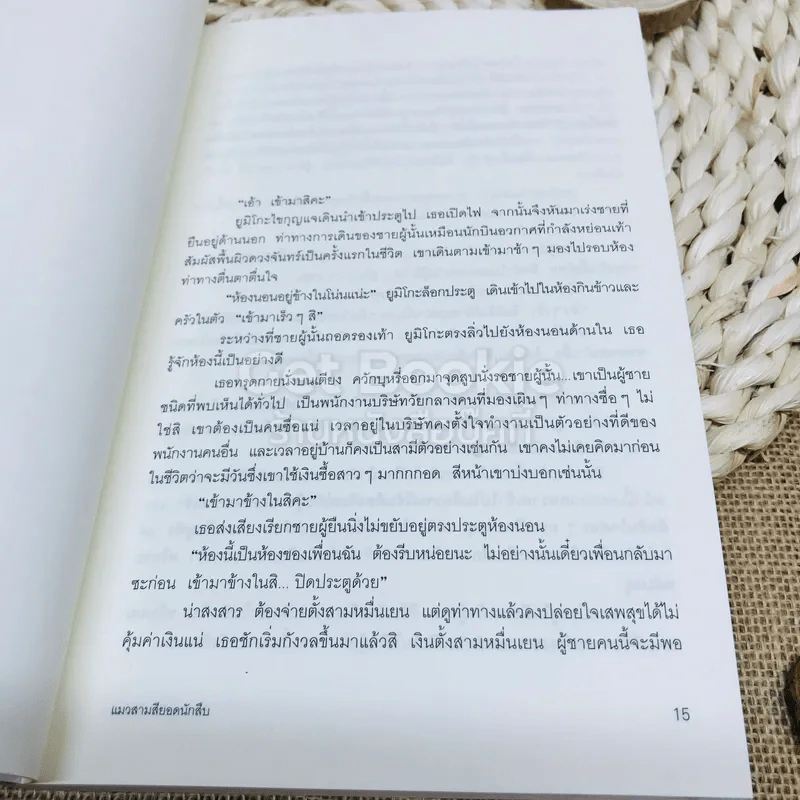 “เอ้า เข้ามาสิคะ”
ยูมิโกะไขกุญแจเดินนำเข้าประตูไป เธอเปิดไฟ จากนั้นจึงหันมาเร่งชายที่
ยืนอยู่ด้านนอก ท่าทางการเดินของชายผู้นั้นเหมือนนักบินอวกาศที่กำลังหย่อนเท้า
สัมผัสพื้นผิวดวงจันทร์เป็นครั้งแรกในชีวิต เขาเดินตามเข้ามาช้า ๆ มองไปรอบห้อง
ท่าทางตื่นตาตื่นใจ
“ห้องนอนอยู่ข้างในโน่นแน่ะ” ยูมิโกะล็อกประตู เดินเข้าไปในห้องกินข้าวและ
ครัวในตัว “เข้ามาเร็ว ๆ สิ”
ระหว่างที่ชายผู้นั้นถอดรองเท้า ยูมิโกะตรงลิ่วไปยังห้องนอนด้านใน เธอ
รู้จักห้องนี้เป็นอย่างดี
เธอทรุดกายนั่งบนเตียง ควักบุหรี่ออกมาจุดสูบนั่งรอชายผู้นั้น...เขาเป็นผู้ชาย
ชนิดที่พบเห็นได้ทั่วไป เป็นพนักงานบริษัทวัยกลางคนที่มองเผิน ๆ ท่าทางซื่อ ๆ ไม่
ใช่สิ เขาต้องเป็นคนซื่อแน่ เวลาอยู่ในบริษัทคงตั้งใจทำงานเป็นตัวอย่างที่ดีของ
พนักงานคนอื่น และเวลาอยู่บ้านก็คงเป็นสามีตัวอย่างเช่นกัน เขาคงไม่เคยคิดมาก่อน
ในชีวิตว่าจะมีวันซึ่งเขาใช้เงินซื้อสาว ๆ มากกกอด สีหน้าเขาบ่งบอกเช่นนั้น
“เข้ามาข้างในสิคะ”
เธอส่งเสียงเรียกชายผู้ยืนนิ่งไม่ขยับอยู่ตรงประตูห้องนอน
“ห้องนี้เป็นห้องของเพื่อนฉัน ต้องรีบหน่อยนะ ไม่อย่างนั้นเดี๋ยวเพื่อนกลับมา
ซะก่อน เข้ามาข้างในสิ... ปิดประตูด้วย”
น่าสงสาร ต้องจ่ายตั้งสามหมื่นเยน แต่ดูท่าทางแล้วคงปล่อยใจเสพสุขได้ไม่
คุ้มค่าเงินแน่ เธอชักเริ่มกังวลขึ้นมาแล้วสิ เงินตั้งสามหมื่นเยน ผู้ชายคนนี้จะมีพอ
แมวสามสียอดนักสืบ 15